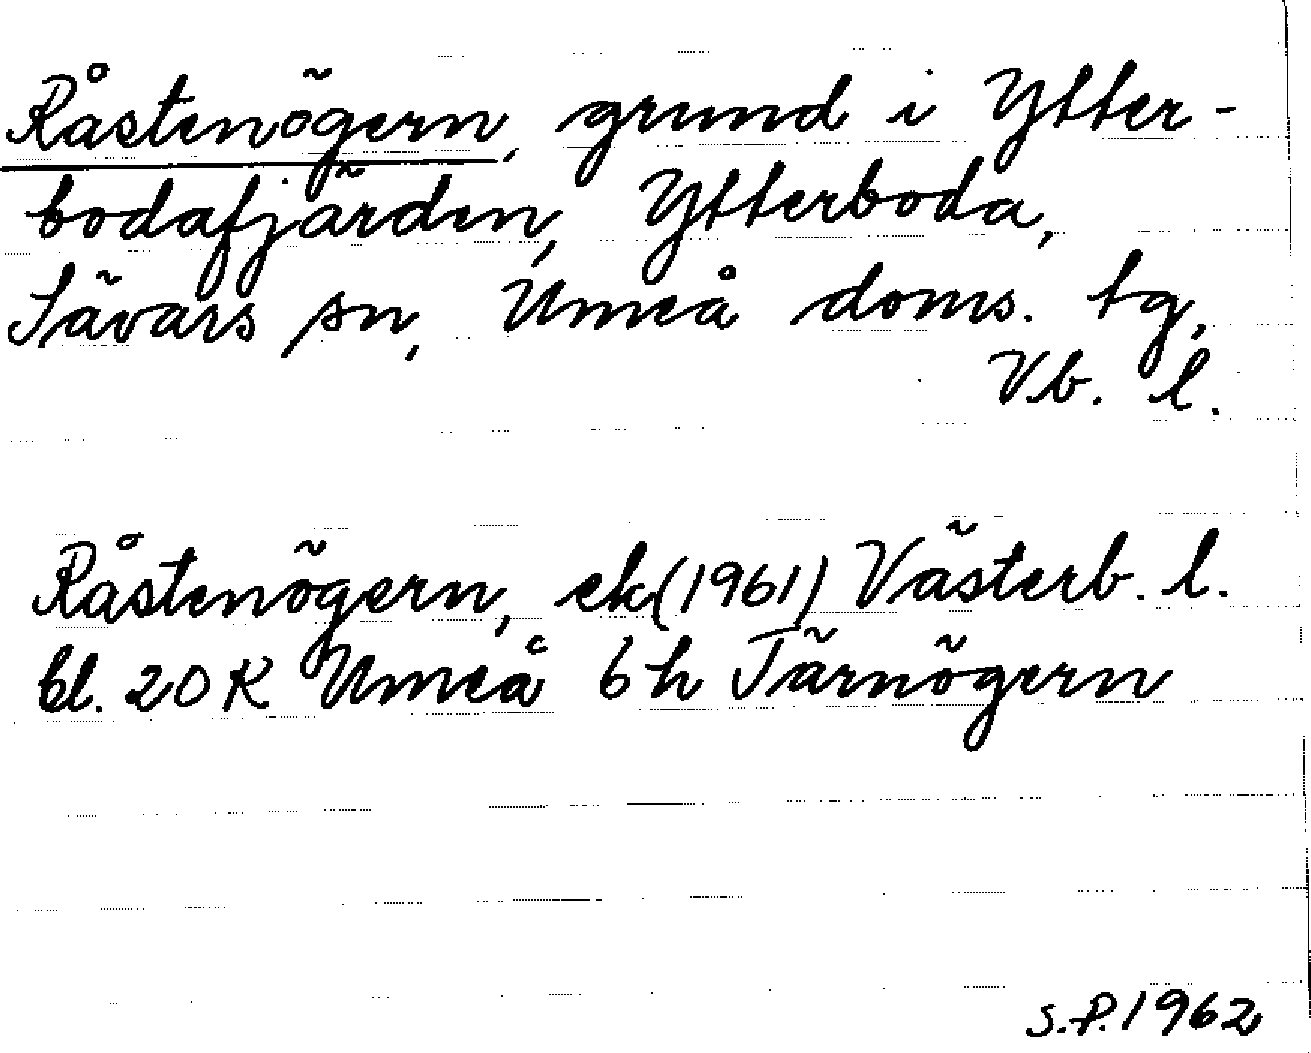 Råstenögern, grund i Ytter-
bodafjärden, Ytterboda,
Sävars sn, Umeå doms. tg,
Vb. l.
Råstenögern, ek (1961) Västerb. l.
bl. 20 K Umeå 6 h Tärnögern
S.P. 1962